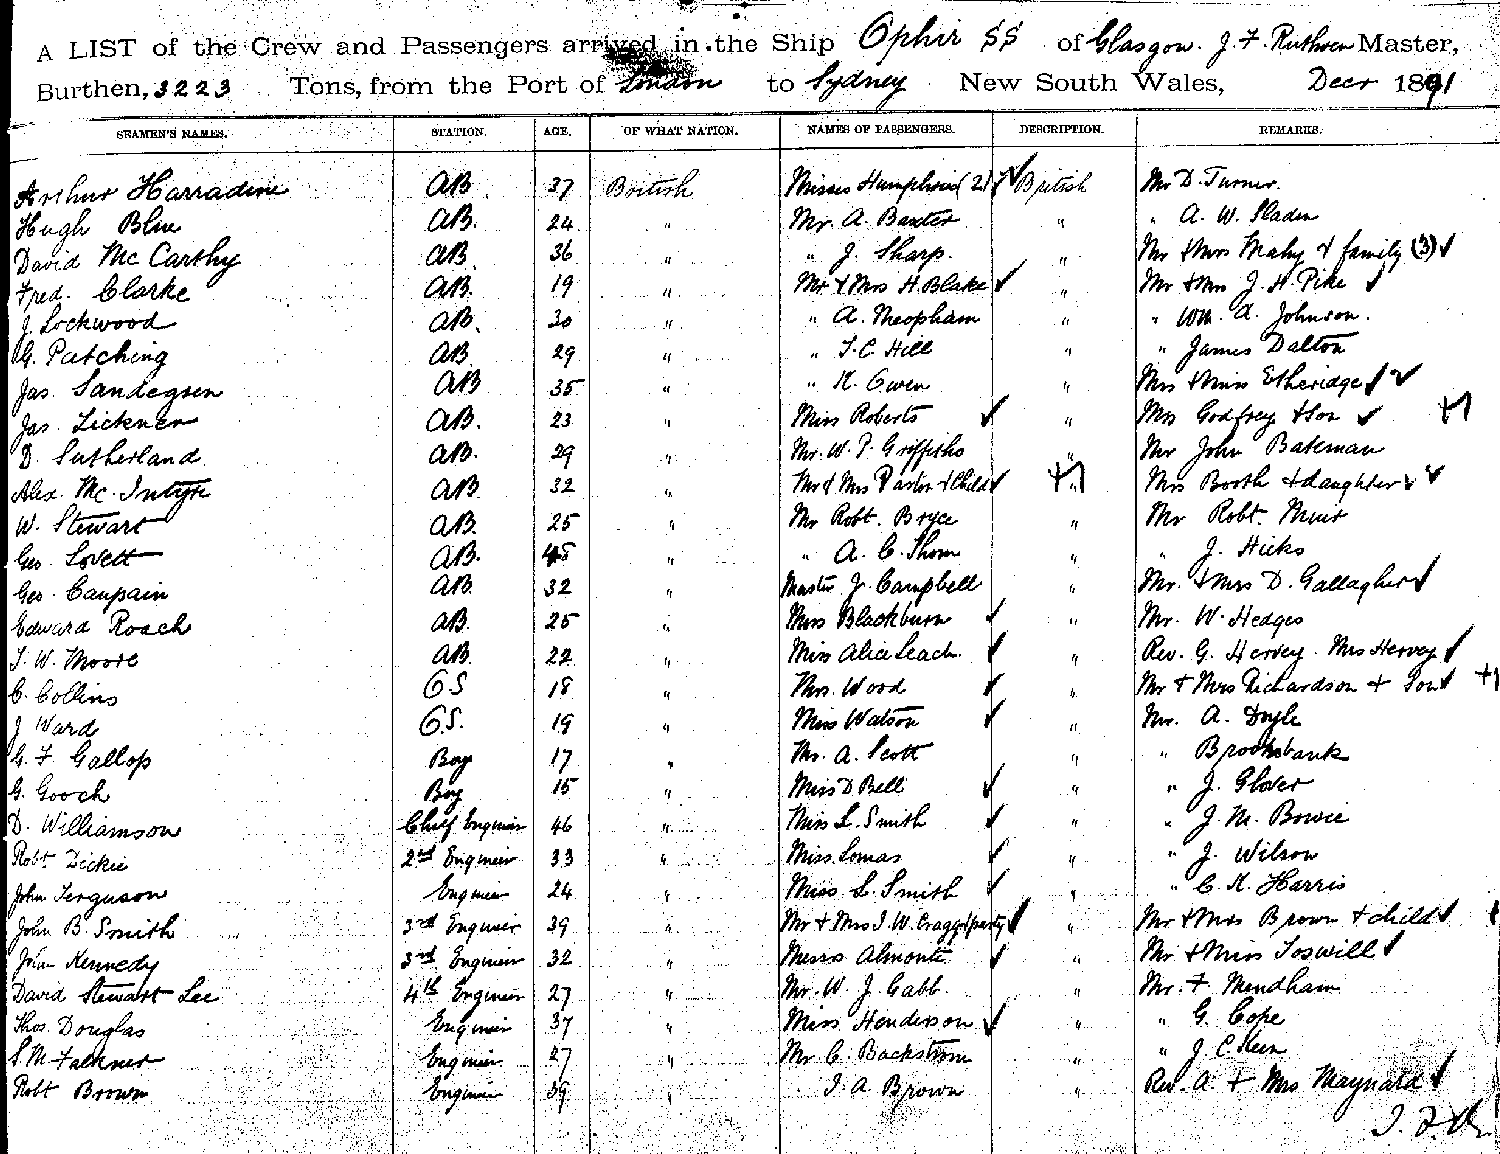 A LIST of the Crew and Passengers arrived in the Ship Ophir SS of Glasgow. J. F. Ruthven Master,
Burthen, 3223 Tons, from the Port of London to Sydney New South Wales, Decr 1891
SEAMEN'S NAMES. STATION. AGE. OF WHAT NATION. NAMES OF PASSENGERS. DESCRIPTION. REMARKS.
Arthur Harradine AB. 37 British Misses Humphries (2) British Mr D. Turner.
Hugh Blue AB. 24 " Mr. A. Baxter " " A. W. Sladen
David Mc Carthy AB. 36 " " J. Sharp. " Mr & Mrs Mahy & family (3)
Fred. Clarke AB. 19 " Mr & Mrs H. Blake " Mr & Mrs J. H. Pike
J. Lockwood AB. 30 " " A. Meopham " " Wm. A. Johnson.
G. Patching AB. 29 " " T. C. Hill " " James Dalton
Jas. Sandegsen AB 35 " " K. Owen " Mrs & Miss Etheridge
Jas. Lickner AB. 23 " Miss Roberts " Mrs Godfrey & Son +1
D. Sutherland AB. 29 " Mr. W. P. Griffiths " Mr John Bateman
Alex. Mc. Intyre AB 32 " Mr & Mrs Pastor & Child +1 " Mrs Booth & daughter
W. Stewart AB. 25 " Mr Robt. Bryce " Mr Robt. Muir
Geo. Lovett AB. 45 " " A. C. Thom " " J. Hicks
Geo. Caupain AB. 32 " Master J. Campbell " Mr. & Mrs D. Gallagher
Edward Roach AB. 25 " Miss Blackburn " Mr. W. Hedges
T. W. Moore AB. 22 " Miss Alice Leach " Rev. G. Hervey. Mrs Hervey
C. Collins OS 18 " Mrs. Wood " Mr & Mrs Richardson & Son +1
J Ward OS. 19 " Miss Watson " Mr. A. Doyle
G. F. Gallop Boy 17 " Mr. A. Scott " " Brooksbank
G. Gooch Boy 15 " Miss D Bell " " J. Glover
D. Williamson Chief Engineer 46 " Miss L. Smith " " J. M. Bowie
Robt Dickie 2nd Engineer 33 " Miss Lomas " " J. Wilson
John Ferguson Engineer 24 " Miss L. Smith " " C. K. Harris
John B. Smith 3rd Engineer 39 " Mr & Mrs J. W. Cragg & party " Mr & Mrs Brown & child
John Kennedy 3rd Engineer 32 " Almonte " Mr & Miss Toswill
David Stewart Lee 4th Engineer 27 " Mr. W. J. Gabb. " Mr. F. Mendham
Thos. Douglas Engineer 37 " Miss Henderson " " G. Cope
S. M. Falkner Engineer 27 " Mr C. Backstrom " " J C Keen
Robt Brown Engineer 39 " J. A Brown " Rev. A. & Mrs Maynard